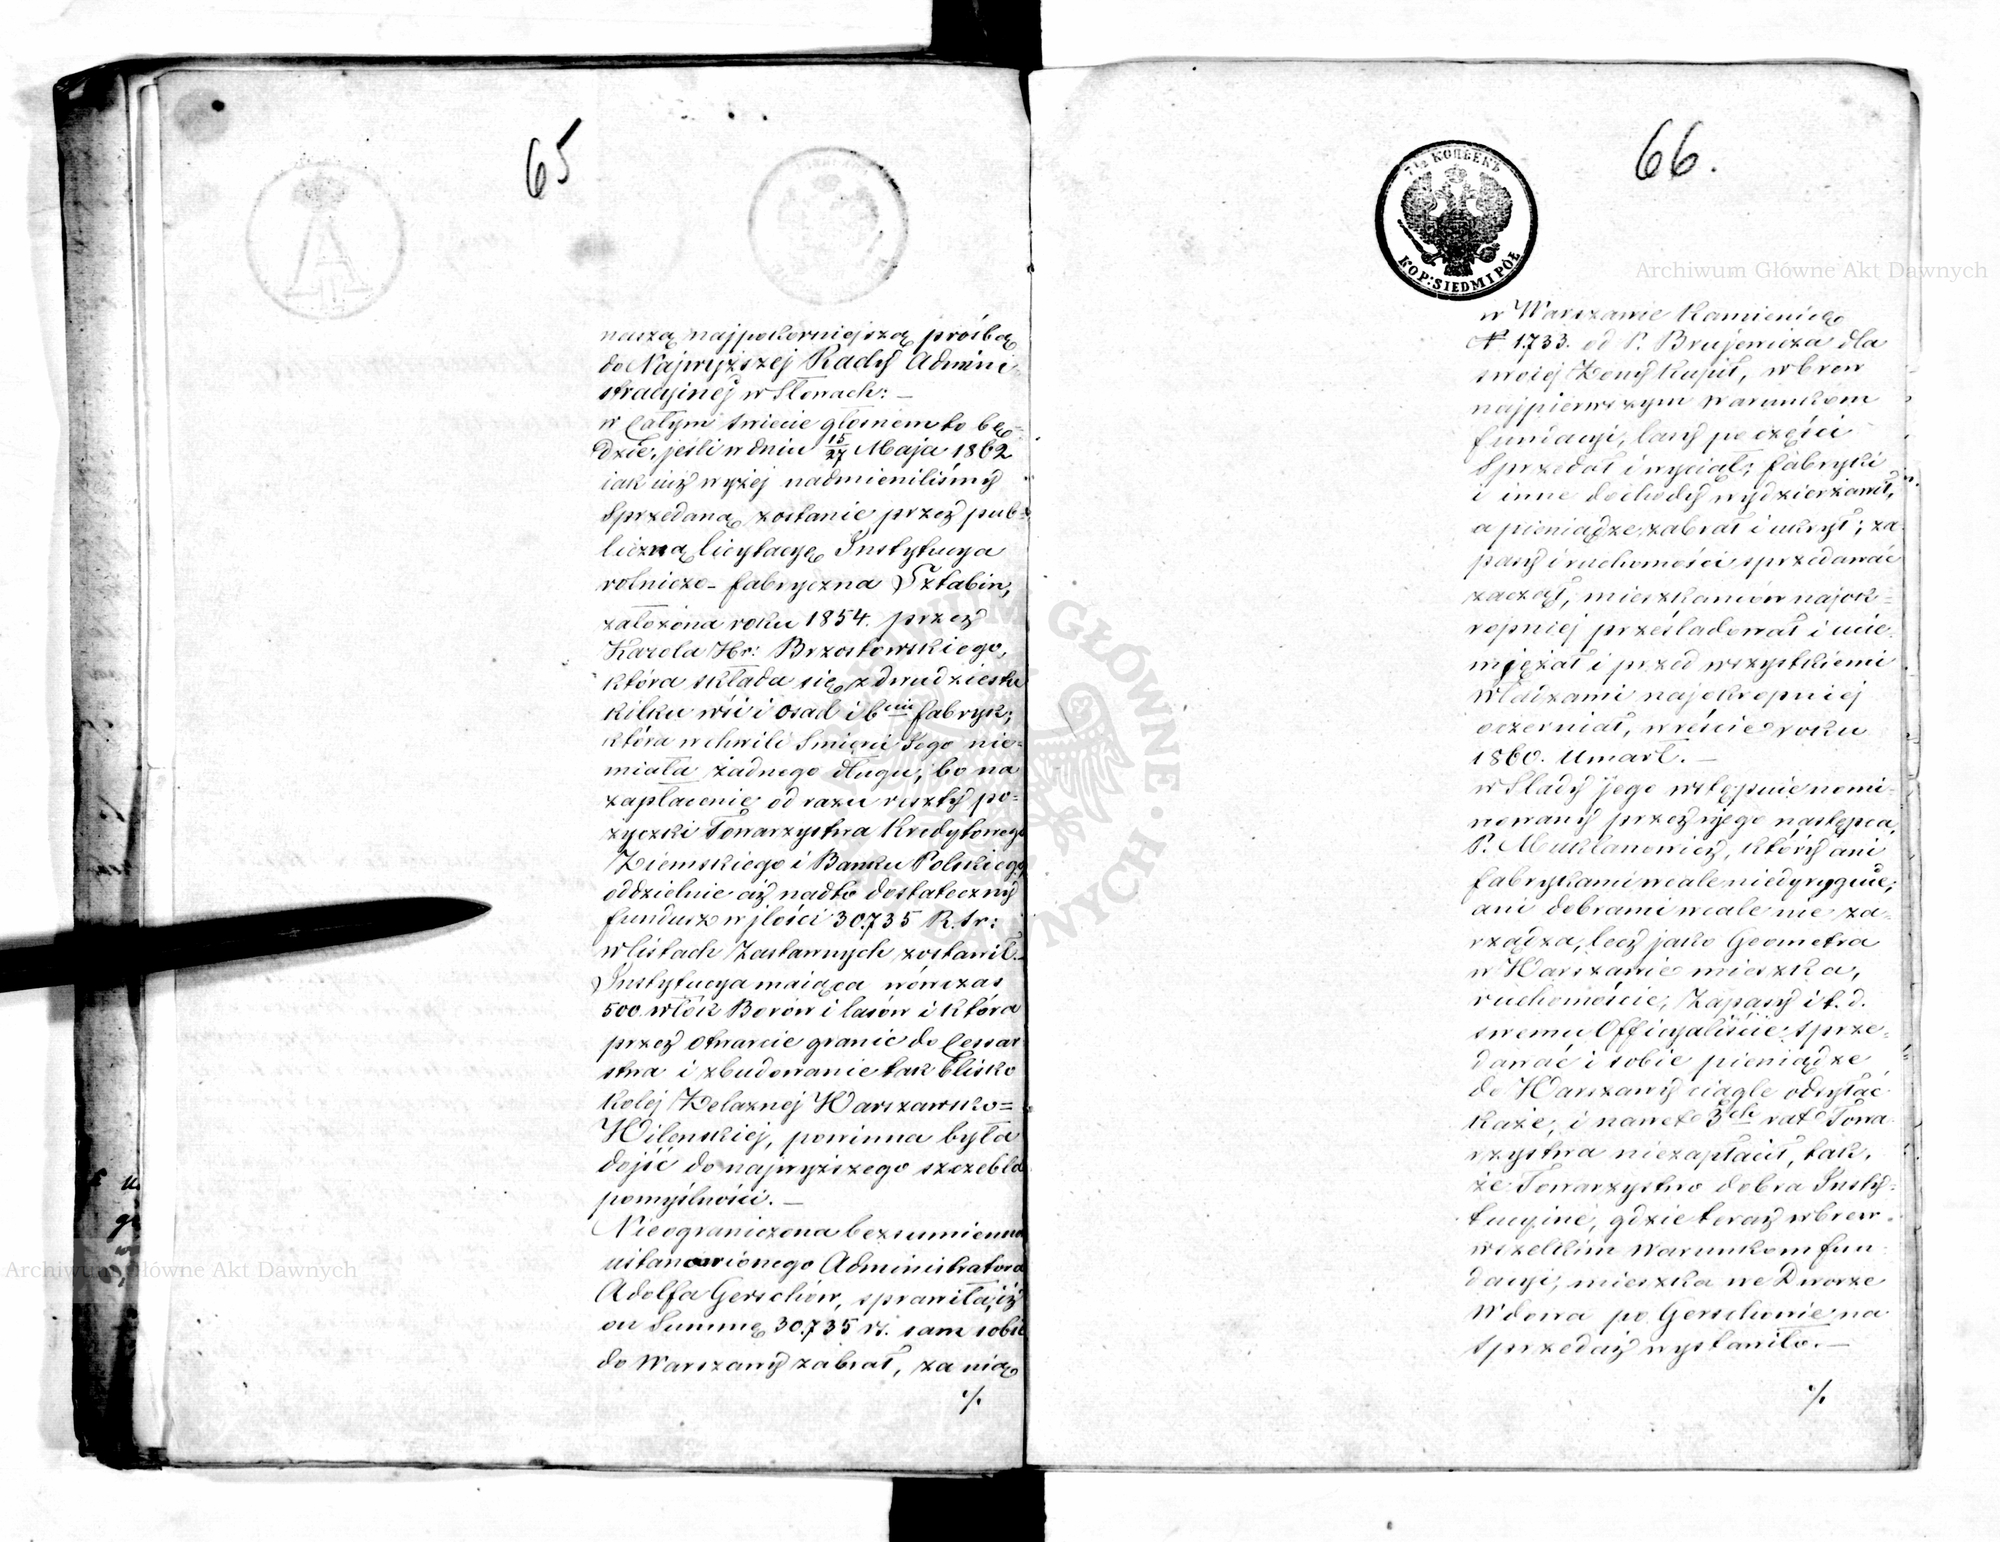 65
naszą najpokorniejszą prośbą
do Najwyższej Rady Admini-
stracyjnej w Słowach: —
w Całym świecie głośnem to bę-
dzie, jeśli w dniu 15/27 Maja 1862
iak iuż wyżej nadmieniliśmy
Sprzedaną zostanie przez pub-
liczną licytacyę Instytucya
rolniczo-fabryczna Sztabin,
założona roku 1854. przez
Karola Hr: Brzostowskiego,
która składa się z dwudziestu
kilku wsi i osad i 6ciu fabryk;
która w chwili śmierci Jego nie-
miała żadnego długu, bo na
zapłacenie od razu reszty po-
życzki Towarzystwa Kredytowego
Ziemskiego i Banku Polskiego
oddzielnie aż nadto dostateczny
fundusz w jlości 30.735 R. sr:
w listach Zastawnych zostawił. —
Instytucya maiąca wówczas
500 włók Borów i lasów i która
przez otwarcie granic do Cesar-
stwa i zbudowanie tak blisko
kolej Żelaznej Warszawsko=
Wilenskiej, powinna była
dojść do najwyższego szczebla
pomyślności. —
Nieograniczona bezsumienność
ustanowionego Administratora
Adolfa Gerschów, sprawiła, iż
on Summę 30.735 rs. sam sobie
do Warszawy zabrał, za nią
%
66.
7 1/2 КОПѢЕКЪ
KOP: SIEDM I PÓŁ
w Warszawie Kamienicę
N 1733. od P. Brujewicza dla
swojej Żony kupił, wbrew
najpierwszym warunkom
fundacyi, lasy po części
Sprzedał i wyciął; fabryki
i inne dochody wydzierżawił,
a pieniądze zabrał i ukrył; za-
pasy i ruchomości sprzedawać
zaczął; mieszkańców najok-
ropniej prześladował i ucie-
miężał i przed wszystkiemi
władzami najokropniej
oczerniał, wreście roku
1860. Umarł. —
w Slady jego wstępuie nomi-
nowany przez niego następca,
P. Muklanowicz, który ani
fabrykami wcale niedyryguie;
ani dobrami wcale nie za-
rządza, lecz jako Geometra
w Warszawie mieszka,
ruchomości; Zapasy i t. d.
swemu Officyaliście sprze-
dawać i sobie pieniądze
do Warszawy ciągle odsyłać
każe, i nawet 3ch rat Towa-
rzystwa niezapłacił, tak,
że Towarzystwo dobra Insty-
tucyine, gdzie teraz wbrew
wszelkim warunkom fun-
dacyi, mieszka we Dworze
Wdowa po Gerschowie na
sprzedaż wystawiło. —
%
Archiwum Główne Akt Dawnych
Archiwum Główne Akt Dawnych